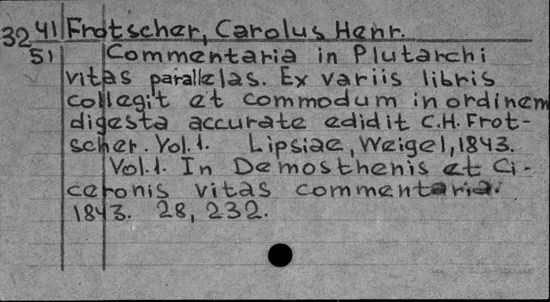 32 41 Frotscher, Carolus Henr.
51 Commentaria in Plutarchi
vitas parallelas. Ex variis libris
collegit et commodum in ordinem
digesta accurate edidit C.H. Frot-
scher. Vol. 1. Lipsiae, Weigel, 1843.
Vol. 1. In Demosthenis et Ci-
ceronis vitas commentaria.
1843. 28, 232.